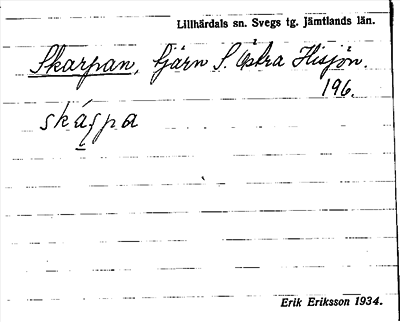 Lillhärdals sn. Svegs tg. Jämtlands län.
Skarpan, tjärn S. Östra Hisjön.
196.
skáspa
Erik Eriksson 1934.